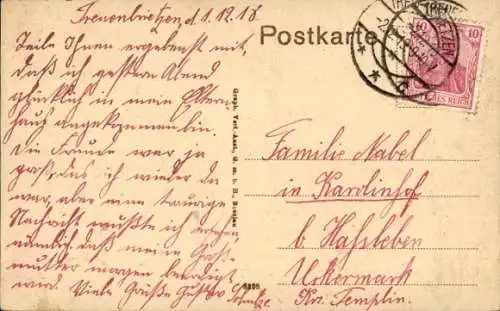 Treuenbrietzen, d. 1.12.18
Teile Ihnen ergebenst mit,
daß ich gestern Abend
glücklich in meine Eltern
haus angekommen bin.
Die Freude war ja
groß, daß ich wieder da
war, aber eine traurige
Nachricht mußte ich
nämlich daß meine Groß-
mutter morgen beerdigt
wird. Viele Grüße Gustav
Schulze.
Postkarte
Graph. Verl.-Anst. G. m. b. H., Breslau
10
Familie Nabel
in Karolinhof
b Haßleben
Uckermark
Kr. Templin.